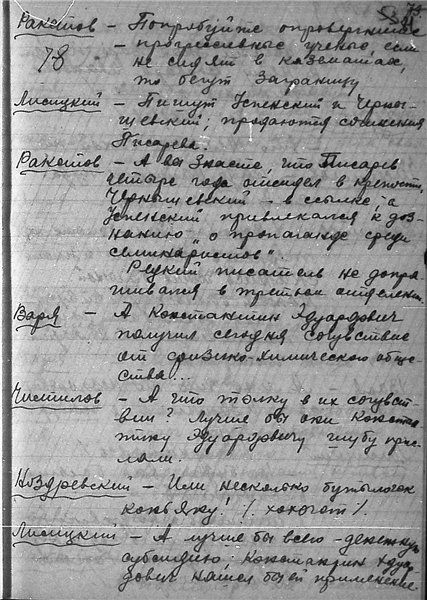 Ракитов - Попробуйте опровергните
78
- прогрессивные ученые, если
не сидят в казематах,
то бегут заграницу
Лисицкий - Пишут Успенский и Черны-
шевский; продаются сочинения
Писарева.
Ракитов - А вы знаете, что Писарев
четыре года отсидел в крепости,
Чернышевский - в ссылке, а
Успенский привлекался к доз-
нанию "о пропаганде среди
семинаристов".
Редкий писатель не допра-
шивался в третьем отделен.
Варя - А Константин Эдуардович
получил сегодня сочувствие
от физико-химического обще-
ства...
Чистилов - А что толку в их сочувст-
вии? Лучше бы они Конста-
нтину Эдуардовичу шубу прис-
лали.
Ноздревский - Или несколько бутылочек
коньяку! /. хохочет /.
Лисицкий - А лучше бы всего - денежную
субсидию; Константин Эдуар-
дович нашел бы ей применение.